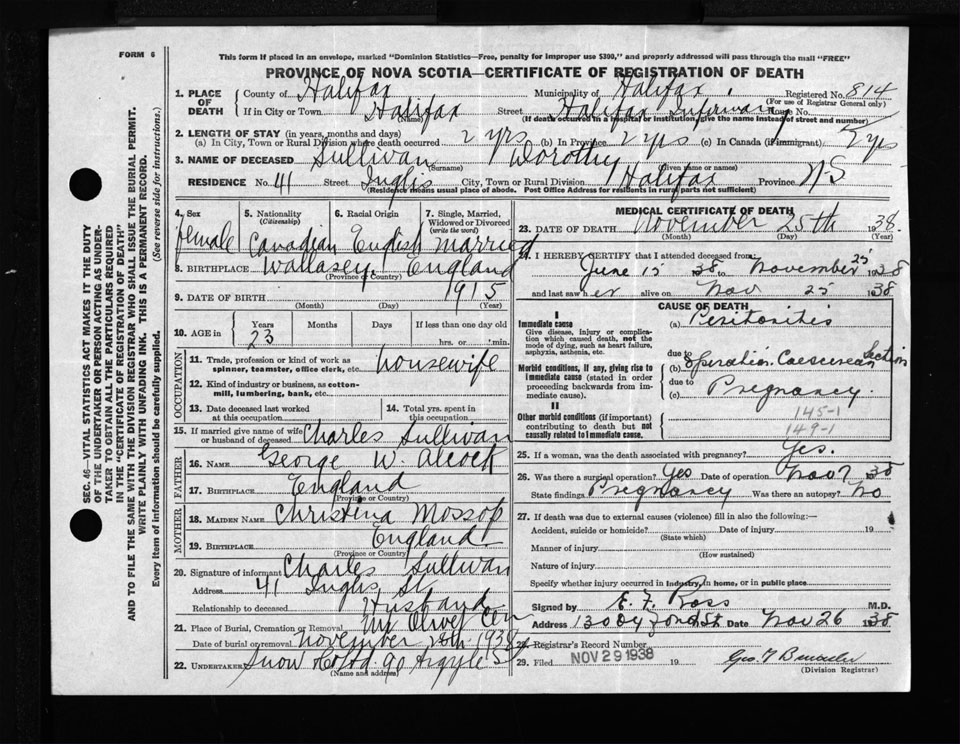 FORM 6
This form if placed in an envelope, marked "Dominion Statistics—Free, penalty for improper use $300," and properly addressed will pass through the mail "FREE"
PROVINCE OF NOVA SCOTIA—CERTIFICATE OF REGISTRATION OF DEATH
SEC. 46—VITAL STATISTICS ACT MAKES IT THE DUTY
OF THE UNDERTAKER OR PERSON ACTING AS UNDER-
TAKER TO OBTAIN ALL THE PARTICULARS REQUIRED
IN THE "CERTIFICATE OF REGISTRATION OF DEATH"
AND TO FILE THE SAME WITH THE DIVISION REGISTRAR WHO SHALL ISSUE THE BURIAL PERMIT.
WRITE PLAINLY WITH UNFADING INK. THIS IS A PERMANENT RECORD.
Every item of information should be carefully supplied. (See reverse side for instructions.)
1. PLACE OF DEATH
County of Halifax Municipality of Halifax Registered No. 814
(For use of Registrar General only)
If in City or Town Halifax Street Halifax Infirmary House No.
(Name) (If death occurred in a hospital or institution, give the name instead of street and number)
2. LENGTH OF STAY (in years, months and days)
(a) In City, Town or Rural Division where death occurred 2 yrs (b) In Province 2 yrs (c) In Canada (if immigrant) yrs
3. NAME OF DECEASED Sullivan Dorothy
(Surname) (Given name or names)
RESIDENCE No. 41 Street Inglis City, Town or Rural Division Halifax Province N.S
(Residence means usual place of abode. Post Office Address for residents in rural parts not sufficient)
4. Sex female
5. Nationality (Citizenship) Canadian
6. Racial Origin English
7. Single, Married, Widowed or Divorced (write the word) Married
8. BIRTHPLACE Wallasey, England
(Province or Country)
9. DATE OF BIRTH 1915
(Month) (Day) (Year)
10. AGE in Years Months Days If less than one day old
23 hrs. or min.
OCCUPATION
11. Trade, profession or kind of work as spinner, teamster, office clerk, etc. Housewife
12. Kind of industry or business, as cotton-mill, lumbering, bank, etc.
13. Date deceased last worked at this occupation
14. Total yrs. spent in this occupation
15. If married give name of wife or husband of deceased Charles Sullivan
FATHER
16. NAME George W. Alcock
17. BIRTHPLACE England
(Province or Country)
MOTHER
18. MAIDEN NAME Christina Mossop
19. BIRTHPLACE England
(Province or Country)
20. Signature of informant Charles Sullivan
Address 41 Inglis St.
Relationship to deceased Husband
21. Place of Burial, Cremation or Removal Mt Olivet Cem
Date of burial or removal November 28th 1938
22. UNDERTAKER Snow & Co Ltd. 90 Argyle St
(Name and address)
MEDICAL CERTIFICATE OF DEATH
23. DATE OF DEATH November 25th 1938.
(Month) (Day) (Year)
24. I HEREBY CERTIFY that I attended deceased from:
June 15 1938 to November 25 1938
and last saw her alive on Nov 25 1938
CAUSE OF DEATH
I
Immediate cause
Give disease, injury or complication which caused death, not the mode of dying, such as heart failure, asphyxia, asthenia, etc.
(a) Peritonitis
due to
Morbid conditions, if any, giving rise to immediate cause (stated in order proceeding backwards from immediate cause).
(b) Operation Caesarean Section
due to
(c) Pregnancy.
II
Other morbid conditions (if important) contributing to death but not causally related to immediate cause.
145-1
149-1
25. If a woman, was the death associated with pregnancy? Yes.
26. Was there a surgical operation? Yes Date of operation Nov 7 1938
State findings Pregnancy Was there an autopsy? No
27. If death was due to external causes (violence) fill in also the following:—
Accident, suicide or homicide? Date of injury 19
(State which)
Manner of injury
(How sustained)
Nature of injury
Specify whether injury occurred in industry, in home, or in public place
Signed by E. F. Ross M.D.
Address 130 Oxford St Date Nov 26 1938
28. Registrar's Record Number
29. Filed NOV 29 1938 19
(Division Registrar)